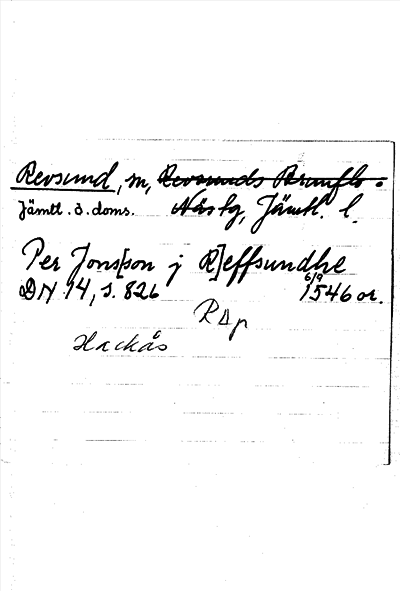 Revsund, sn, Revsunds Brunflo o
Jämtl. ö. doms. Näs tg, Jämtl. l.
Per Jons[son j R]effsundhe
DN 14, s. 826 6/9 1546 or.
R∆p
Hackås